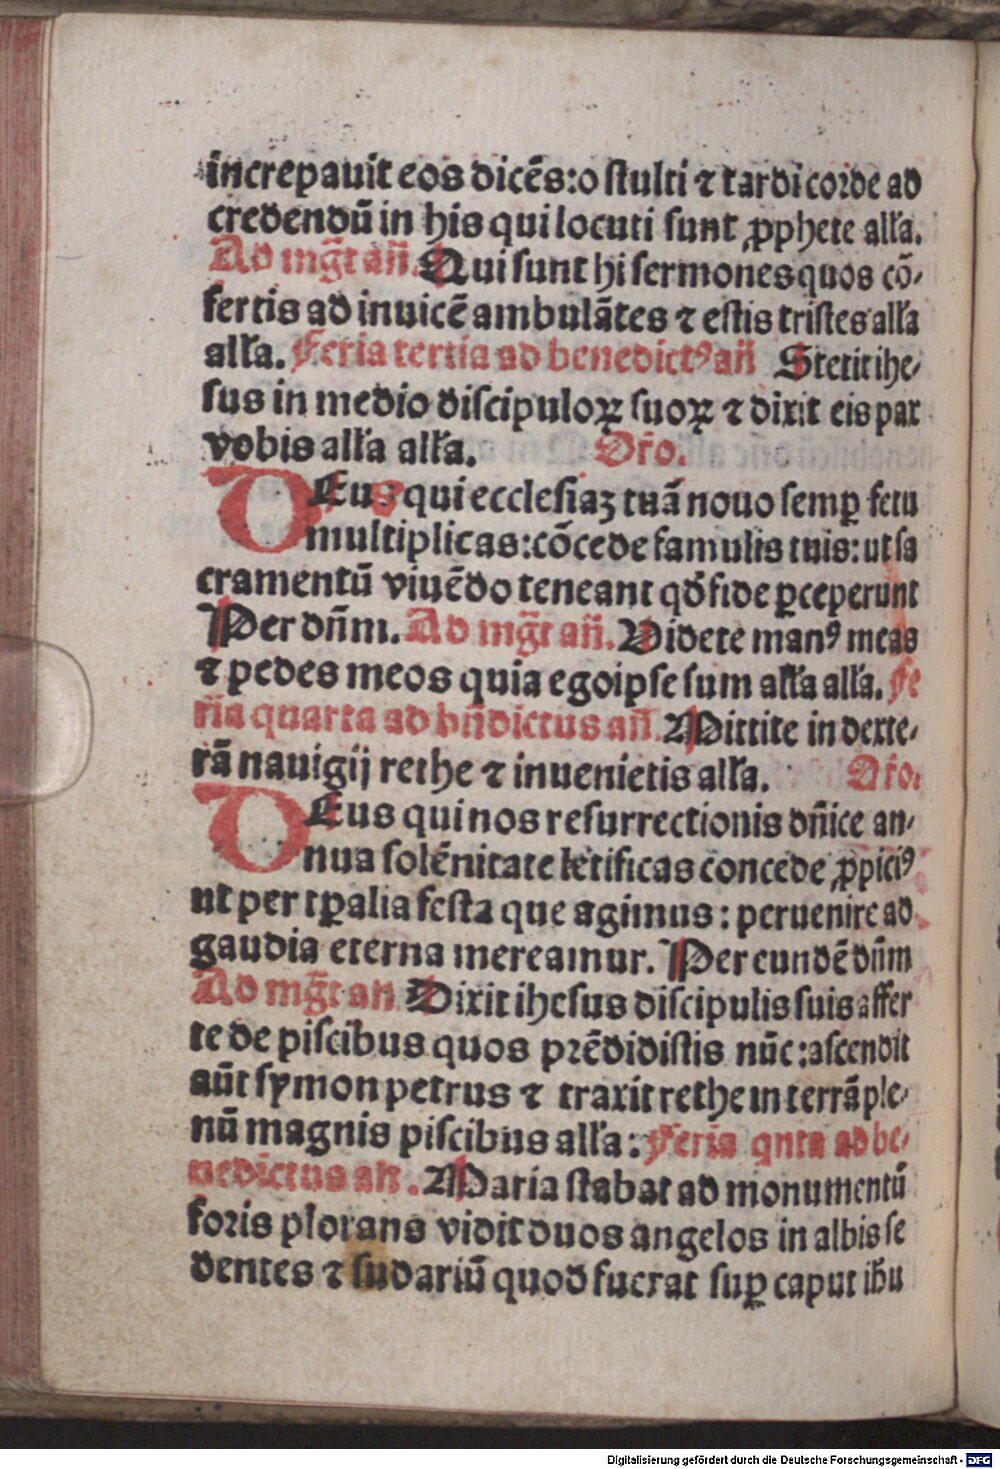 increpauit eos dicẽs:o ſtulti ⁊ tardi corde ad
credendũ in his qui locuti ſunt ꝓphete alľa.
Ad mg̃t añ. Qui ſunt hi ſermones quos cõ-
fertis ad inuicẽ ambulãtes ⁊ eſtis triſtes alľa
alľa. Feria tertia ad benedictꝰ añ Stetit ihe-
ſus in medio diſcipuloꝝ ſuoꝝ ⁊ dixit eis pax
vobis alľa alľa. Or̃o.
DEus qui eccleſiaꝫ tuã nouo ſemꝑ fetu
multiplicas:cõcede famulis tuis: ut ſa
cramentũ viuẽdo teneant qd̃ fide ꝑceperunt
Per dñm. Ad mg̃t añ. Videte manꝰ meas
⁊ pedes meos quia ego ipſe ſum alľa alľa. Fe
ria quarta ad bñdictus añ. Mittite in dexte-
rã nauigij rethe ⁊ inuenietis alľa. Or̃o.
DEus qui nos reſurrectionis dñice an-
nua ſolẽnitate letificas concede ꝓpiciꝰ
ut per tꝑalia feſta que agimus: peruenire ad
gaudia eterna mereamur. Per eundẽ dñm
Ad mg̃t añ Dixit iheſus diſcipulis ſuis affer
te de piſcibus quos prẽdidiſtis nũc:aſcendit
aũt ſymon petrus ⁊ traxit rethe in terrã ple-
nũ magnis piſcibus alľa: Feria qnta ad be-
nedictus añ. Maria ſtabat ad monumentũ
foris plorans vidit duos angelos in albis ſe
dentes ⁊ ſudariũ quod fuerat ſuꝑ caput ihũ
Digitalisierung gefördert durch die Deutsche Forschungsgemeinschaft - DFG